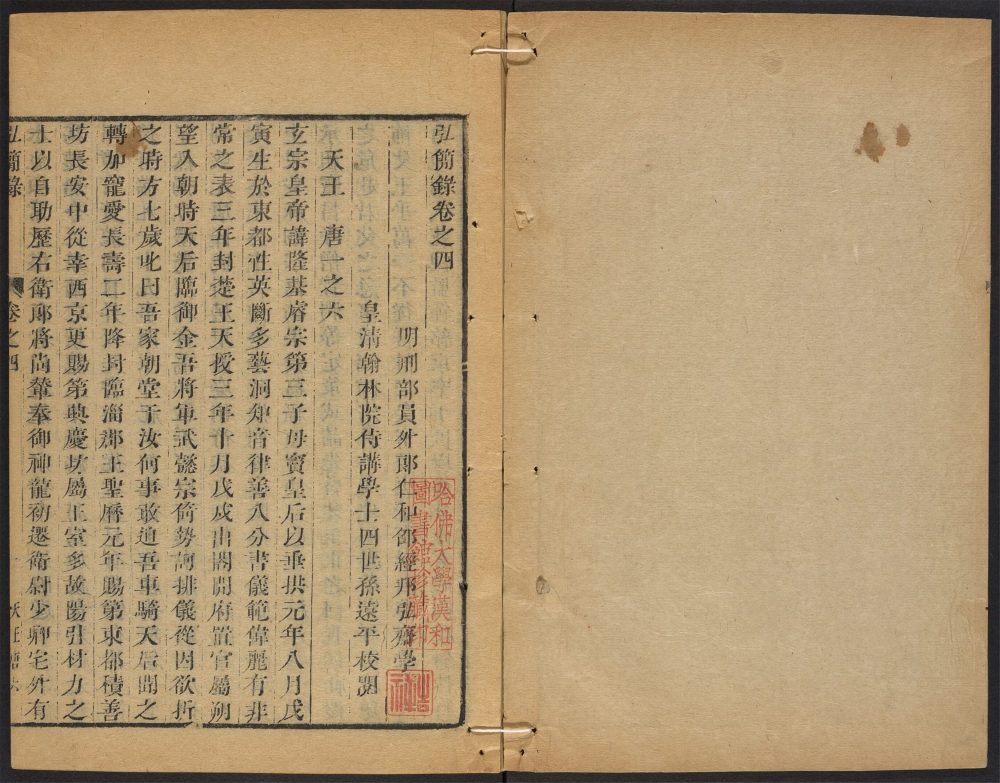 弘簡錄卷之四
明刑部員外郎仁和邵經邦弘齋學
皇清翰林院侍講學士四世孫遠平校閱
天王 唐一之六
玄宗皇帝諱隆基睿宗第三子母竇皇后以垂拱元年八月戊
寅生於東都性英斷多藝洞知音律善八分書儀範偉麗有非
常之表三年封楚王天授三年十月戊戌出閤開府置官屬朔
望入朝時天后臨御金吾將軍武懿宗倚勢訶排儀從因欲折
之時方七歲叱曰吾家朝堂于汝何事敢迫吾車騎天后聞之
轉加寵愛長壽二年降封臨淄郡王聖曆元年賜第東都積善
坊長安中從幸西京更賜第興慶坊屬王室多故陽引材力之
士以自助歷右衛郎將尚輦奉御神龍初遷衛尉少卿宅外有
弘簡錄 卷之四
哈佛大學漢和
圖書館珍藏印